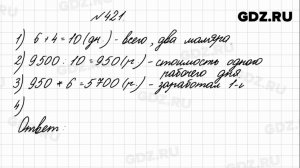 GDZ.RU
№421
1) 6+4=10(дн) - всего, два маляра
2) 9500:10=950(р) - стоимость одного
рабочего дня
3) 950*6=5700(р) - заработал 1-й
4)
Ответ:
GDZ.RU